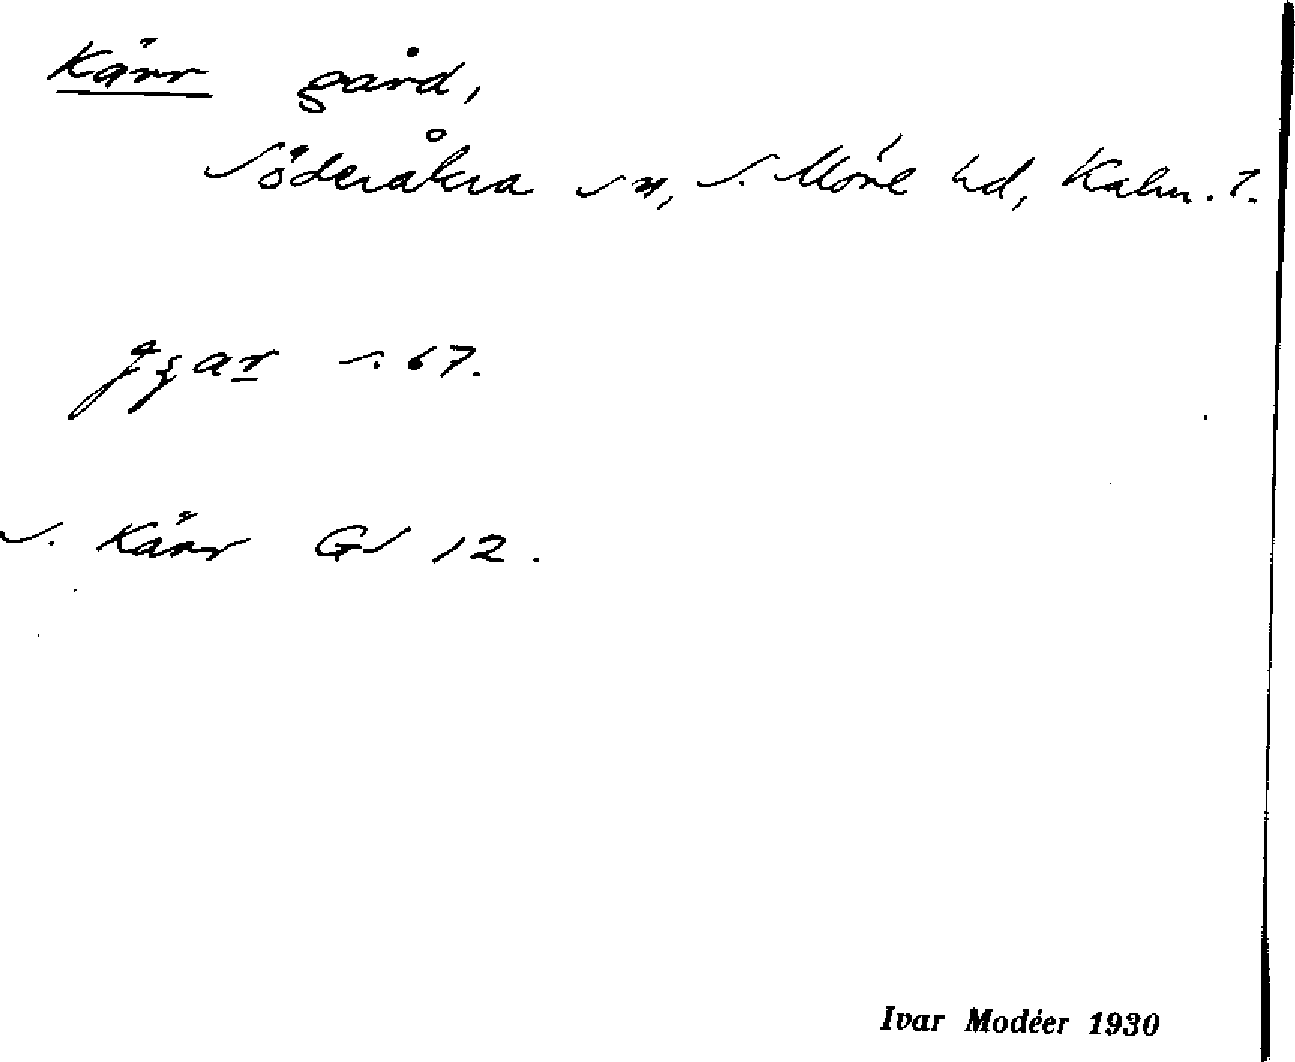 Kärr gård,
Söderåkra sn, S. Möre hd, Kalm. l.
s. 67.
S. Kärr GS 12.
Ivar Modéer 1930